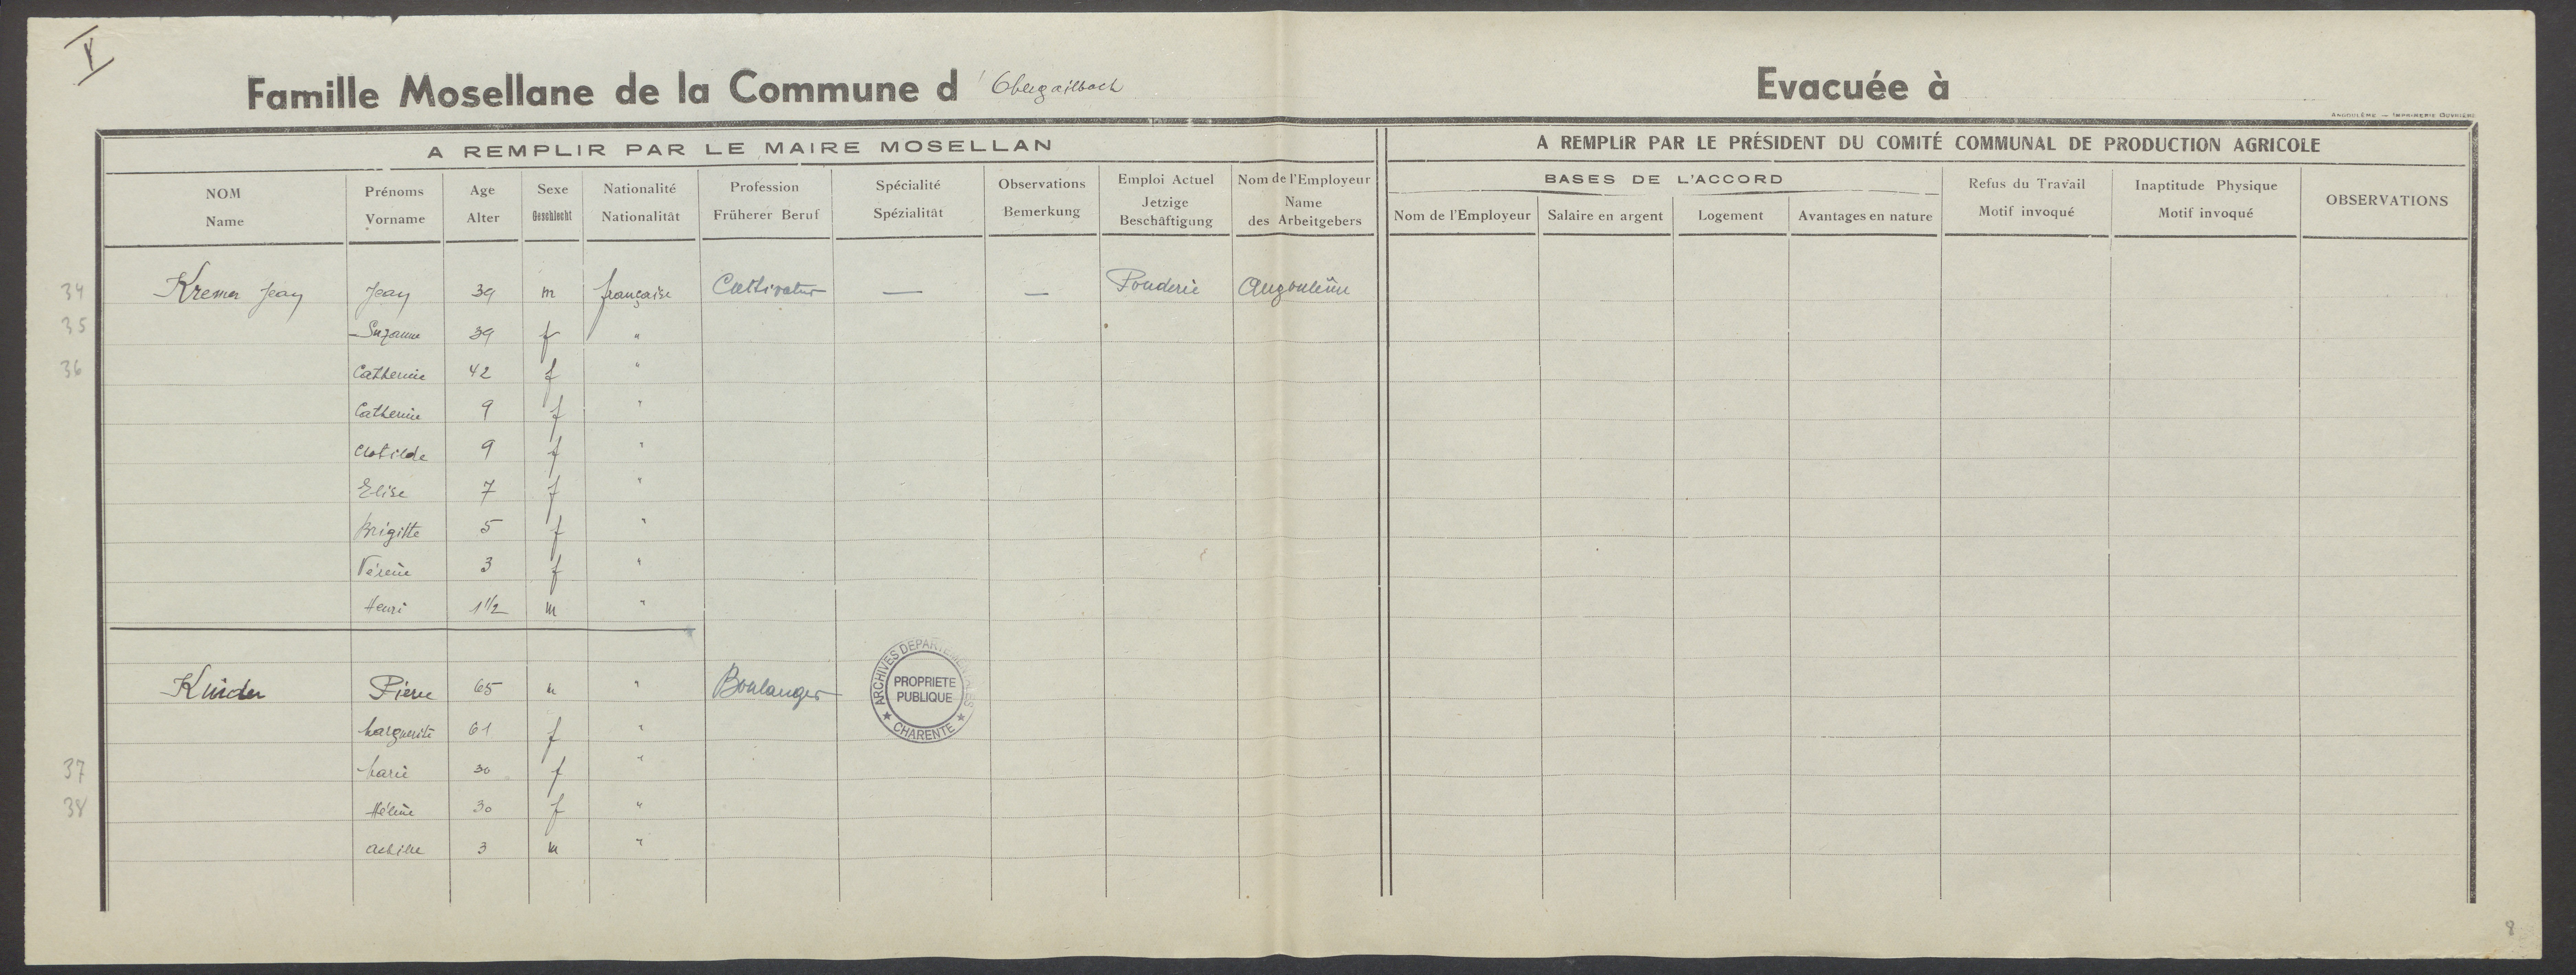 V
Famille Mosellane de la Commune d' Obergailbach
Evacuée à
ANGOULÊME — IMPRIMERIE OUVRIÈRE
A REMPLIR PAR LE MAIRE MOSELLAN
A REMPLIR PAR LE PRÉSIDENT DU COMITÉ COMMUNAL DE PRODUCTION AGRICOLE
NOM Name
Prénoms Vorname
Age Alter
Sexe Geschlecht
Nationalité Nationalität
Profession Früherer Beruf
Spécialité Spézialität
Observations Bemerkung
Emploi Actuel Jetzige Beschäftigung
Nom de l'Employeur Name des Arbeitgebers
BASES DE L'ACCORD
Nom de l'Employeur
Salaire en argent
Logement
Avantages en nature
Refus du Travail Motif invoqué
Inaptitude Physique Motif invoqué
OBSERVATIONS
34 Kremer Jean Jean 39 m française Cultivateur — — Poudrerie Angoulême
35 Suzanne 39 f "
36 Catherine 42 f "
Catherine 9 f "
Clotilde 9 f "
Elise 7 f "
Brigitte 5 f "
Vérène 3 f "
Henri 1 1/2 m "
Kinder Pierre 65 m " Boulanger
Marguerite 61 f "
37 Marie 30 f "
38 Hélène 30 f "
Achille 3 m "
ARCHIVES DEPARTEMENTALES
PROPRIETE
PUBLIQUE
★ CHARENTE ★
8